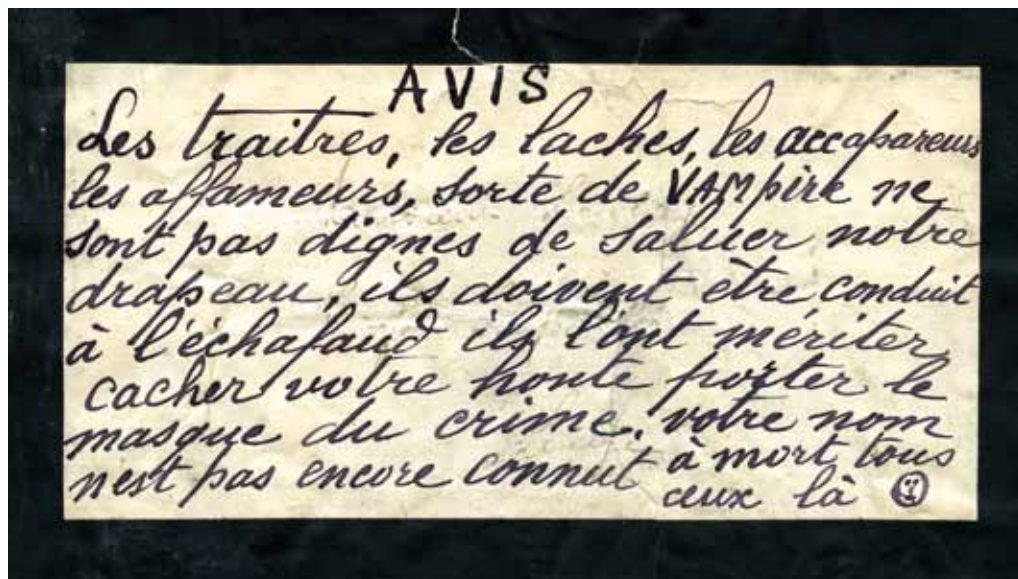 AVIS
Les traitres, les laches, les accapareurs
les affameurs, sorte de VAMpire ne
sont pas dignes de saluer notre
drapeau, ils doivent être conduit
à l'échafaud ils l'ont mériter,
cacher votre honte porter le
masque du crime. votre nom
nest pas encore connut à mort tous
ceux là